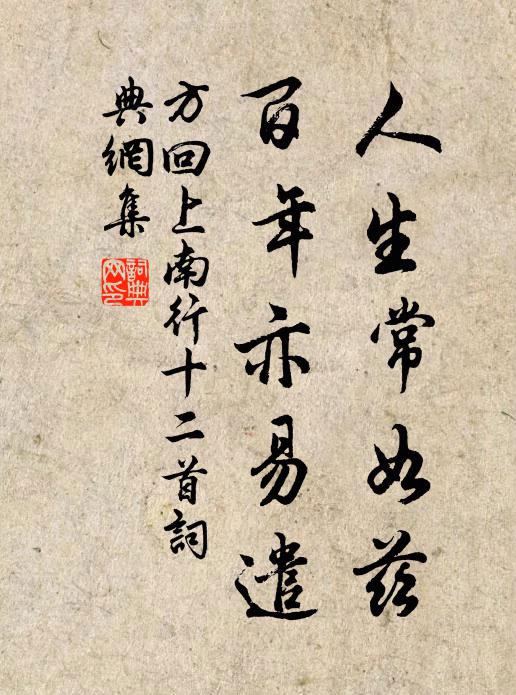 人生常如茲
百年亦易遣
方回上南行十二首詞
典網集
詞典
网印